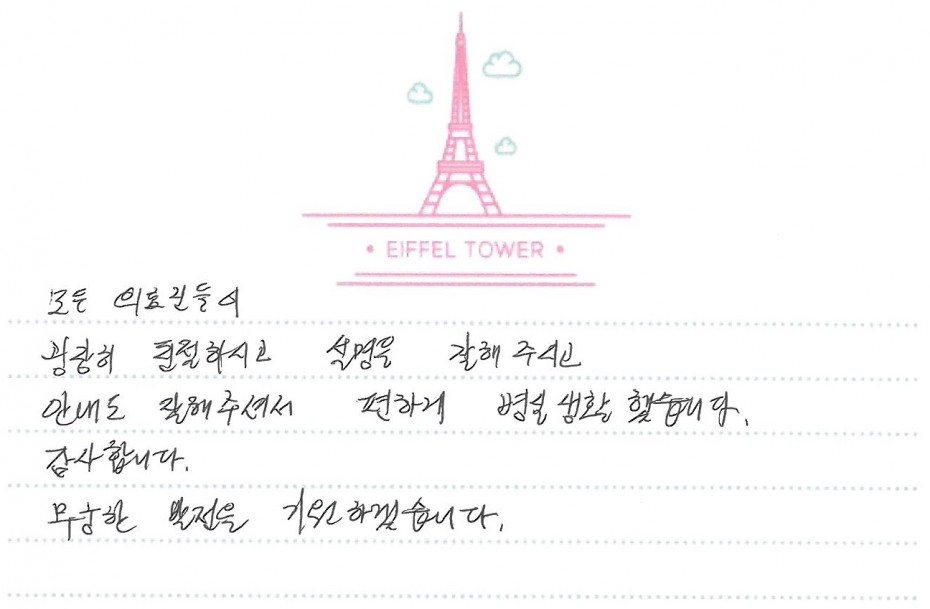 • EIFFEL TOWER •
모든 의료진들이
굉장히 친절하시고 설명을 잘해 주시고
안내도 잘해주셔서 편하게 병실 생활 했습니다.
감사합니다.
무궁한 발전을 기원하겠습니다.